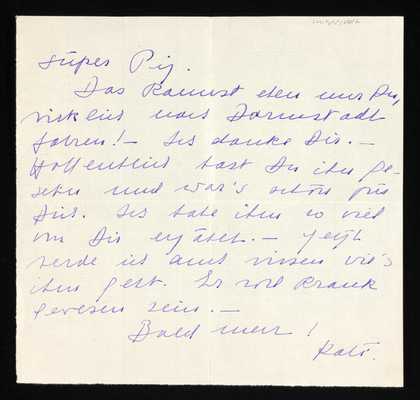 Süsses Pij.
Das kannst eben nur Du,
wirklich nach Darmstadt
fahren! – Ich danke Dir. –
Hoffentlich hast Du ihn ge-
sehn und war's schön für
Dich. Ich habe ihm so viel
von Dir erzählt. – Jetzt
werde ich auch wissen wie's
ihm geht. Er soll krank
gewesen sein. –
Bald mehr!